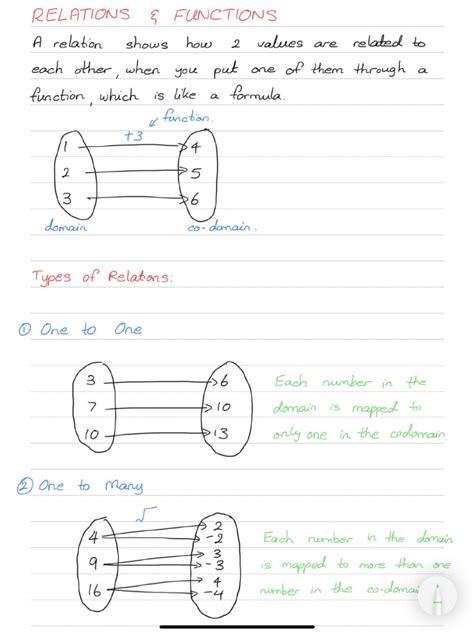 RELATIONS & FUNCTIONS
A relation shows how 2 values are related to
each other, when you put one of them through a
function, which is like a formula.
function.
+3
1 4
2 5
3 6
domain co-domain.
Types of Relations:
① One to One
3 6
7 10
10 13
Each number in the
domain is mapped to
only one in the codomain
② One to Many
√
4 2
-2
9 3
-3
16 4
-4
Each number in the domain
is mapped to more than one
number in the co-domai